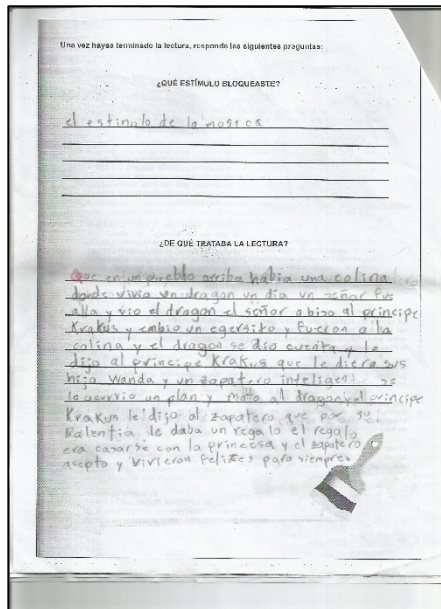 Una vez hayas terminado la lectura, responde las siguientes preguntas:
¿QUÉ ESTÍMULO BLOQUEASTE?
el estimulo de la mosica
¿DE QUÉ TRATABA LA LECTURA?
Que en un pueblo arriba había una colina
donde vivia un dragon un dia un señor fue
alla y vio el dragon el señor abiso al principe
Krakus y embio un egersito y fueron a la
colina y el dragon se dio cuenta y le
dijo al principe Krakus que le diera sus
hija Wanda y un zapatero inteligent se
le ocurrio un plan y mato al dragon y el principe
Krakus le dijo al zapatero que por su
Balentia le daba un regalo el regalo
era casarse con la princesa y el zapatero
asepto y vivieron felizes para siempre